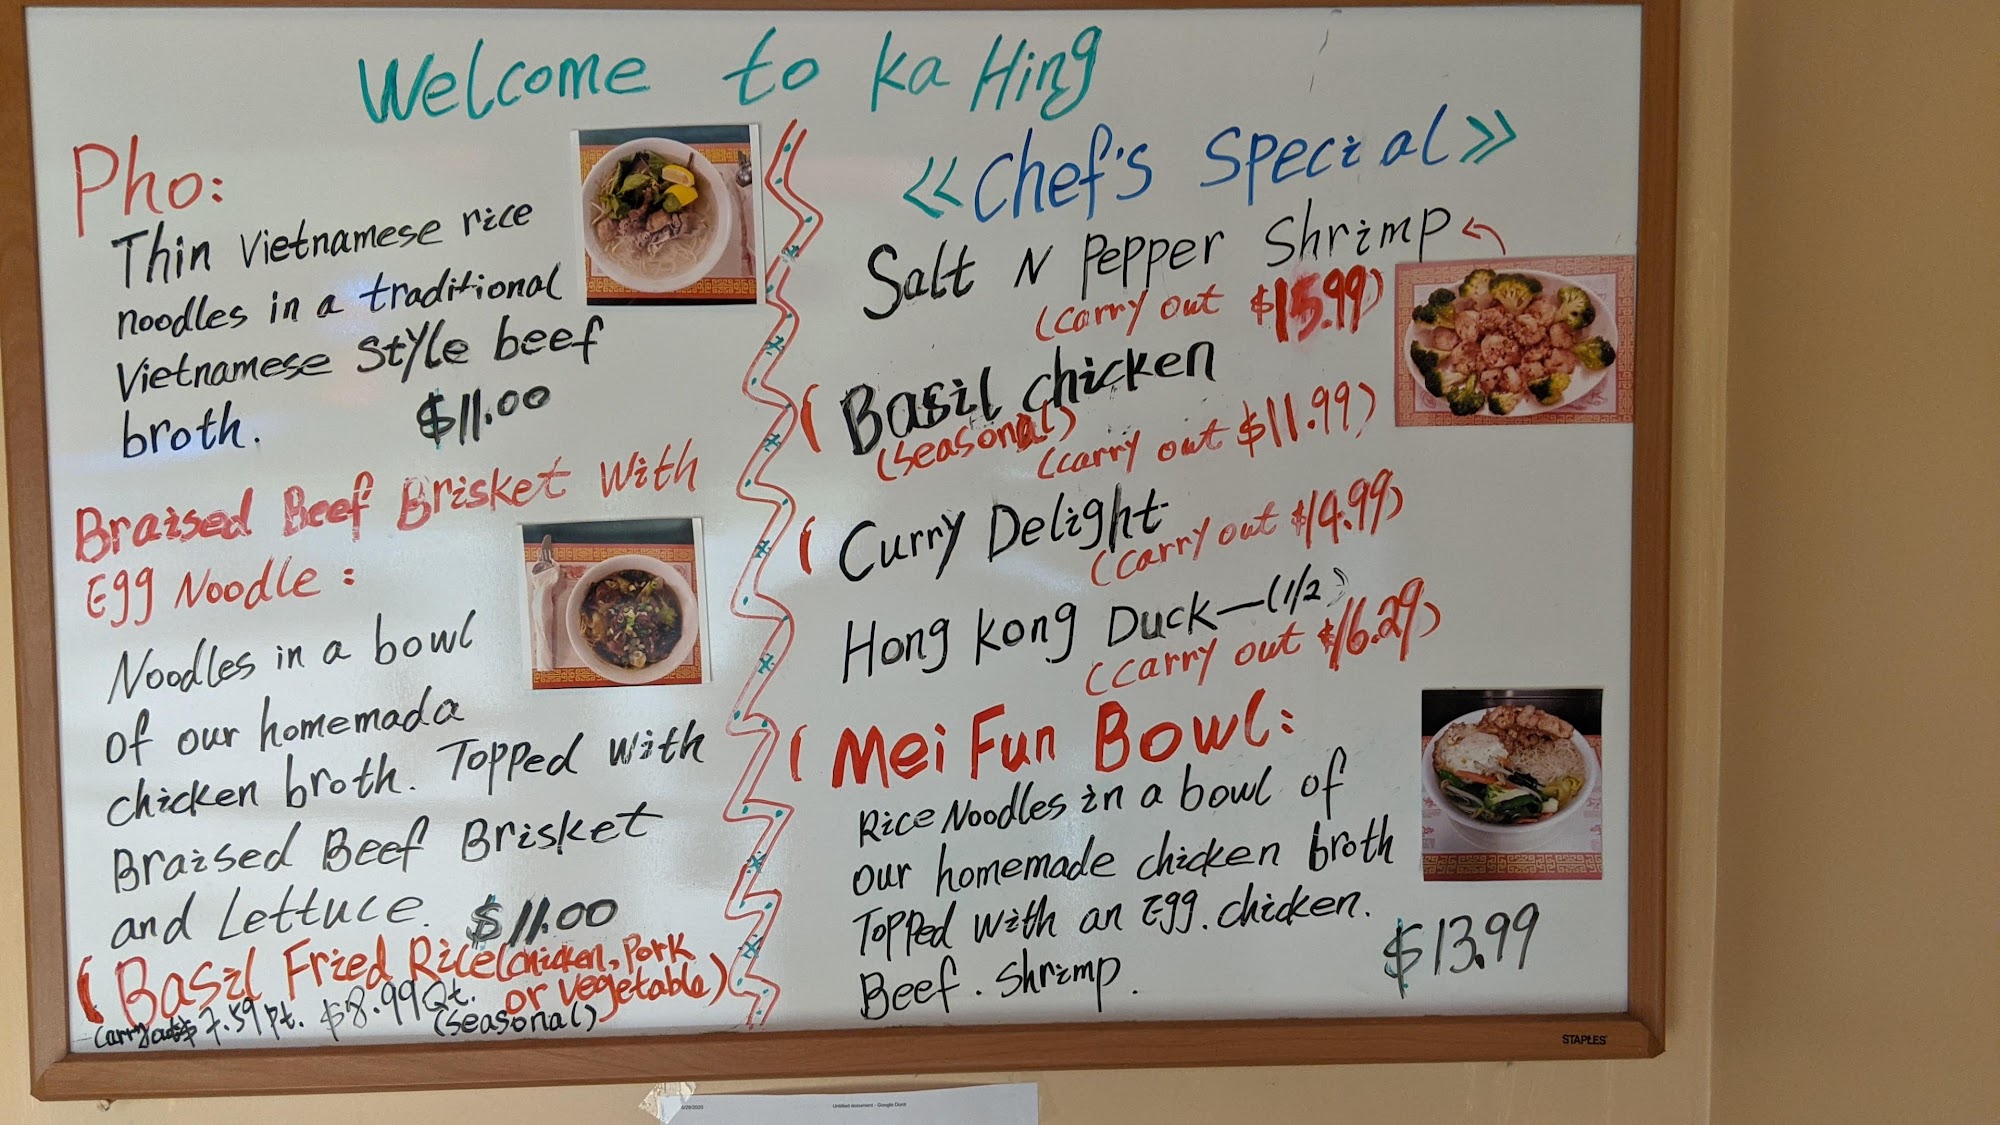 Welcome to Ka Hing
Pho:
Thin Vietnamese rice
noodles in a traditional
Vietnamese Style beef
broth. $11.00
Braised Beef Brisket With
Egg Noodle:
Noodles in a bowl
of our homemada
chicken broth. Topped with
Braised Beef Brisket
and Lettuce. $11.00
(Basil Fried Rice (chicken, pork
or vegetable)
carry out $7.59 pt. $8.99 Qt.
(seasonal)
<<Chef's Special>>
Salt N Pepper Shrimp
(carry out $15.99)
(Basil chicken
(seasonal)
(carry out $11.99)
(Curry Delight
(carry out $14.99)
Hong Kong Duck—(1/2)
(carry out $16.29)
(Mei Fun Bowl:
Rice Noodles in a bowl of
our homemade chicken broth
Topped with an Egg. chicken.
Beef. Shrimp.
$13.99
STAPLES
Untitled document - Google Docs